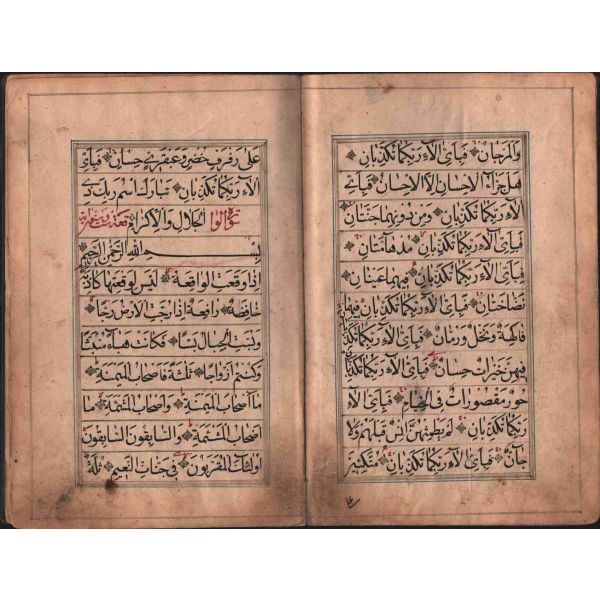 والمرجان فباي الاء ربكما تكذبان
هل جزاء الاحسان الا الاحسان فباي
الاء ربكما تكذبان ومن دونهما جنتان
فباي الاء ربكما تكذبان مدهامتان
فباي الاء ربكما تكذبان فيهما عينان
نضاختان فباي الاء ربكما تكذبان فيهما
فاكهة ونخل ورمان فباي الاء ربكما تكذبان
فيهن خيرات حسان فباي الاء ربكما تكذبان
حور مقصورات في الخيام فباي الاء
ربكما تكذبان لم يطمثهن انس قبلهم ولا
جان فباي الاء ربكما تكذبان متكئين
على رفرف خضر وعبقري حسان فباي
الاء ربكما تكذبان تبارك اسم ربك ذي
الجلال والاكرام
بسم الله الرحمن الرحيم
اذا وقعت الواقعة ليس لوقعتها كاذبة
خافضة رافعة اذا رجت الارض رجا
وبست الجبال بسا فكانت هباء منبثا
وكنتم ازواجا ثلثة فاصحاب الميمنة
ما اصحاب الميمنة واصحاب المشئمة ما
اصحاب المشئمة والسابقون السابقون
اولئك المقربون في جنات النعيم ثلة